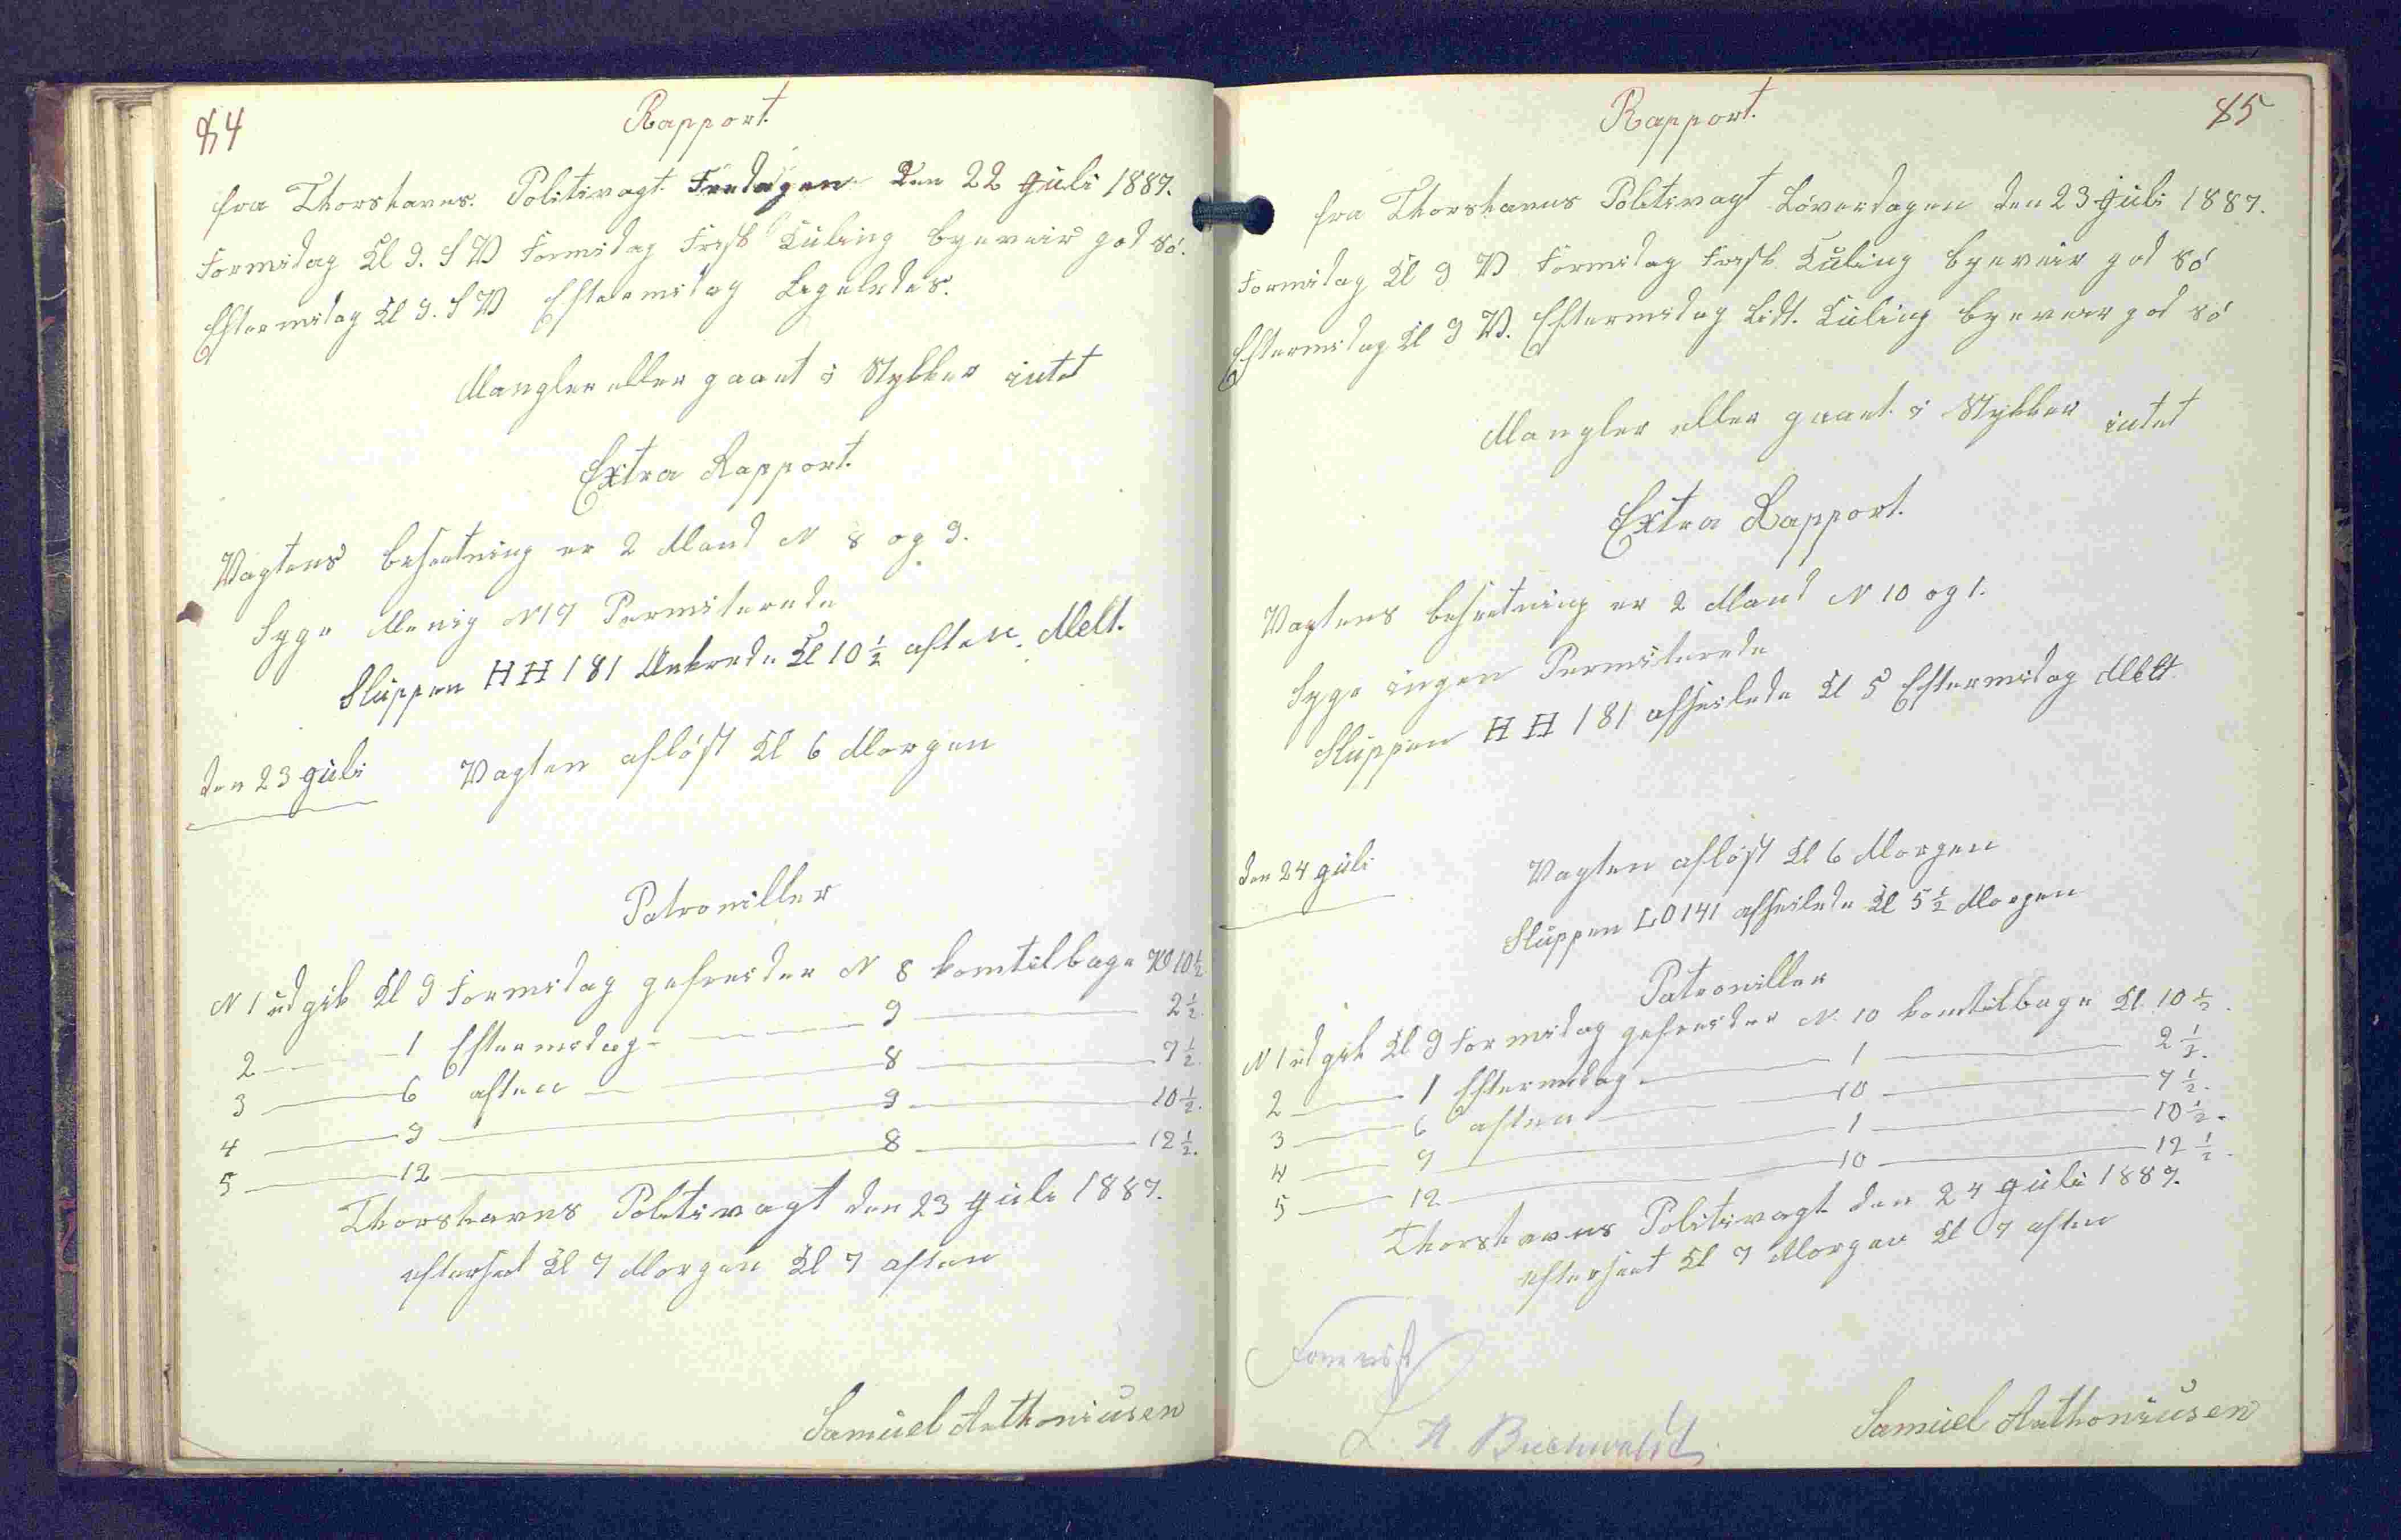 84
Rapport.
fra Thorshavns. Politivagt. Fredagen den 22 Juli 1887.
Formidag Kl 9. S V Formidag Frisk Kuling byeveir god Sö.
Eftermidag Kl 9. S V Eftermidag Ligeledes.
Mangler eller gaaet i Stykker intet
Extra Rapport.
Vagtens besætning er 2 Mand N 8 og 9.
Syge Menig N 7 Permiterede
Sluppen HH 181 Ankrede Kl 10 1/2 aften. Melt.
den 23 Juli Vagten aflöst Kl 6 Morgen
Patroviller
N 1 udgik Kl 9 Formidag gefreider N 8 komtilbage Kl 10 1/2
2 — 1 Eftermidag — 9 — 2 1/2.
3 — 6 aften — 8 — 7 1/2.
4 — 9 — 9 — 10 1/2.
5 — 12 — 8 — 12 1/2.
Thorshavns Politivagt den 23 Juli 1887.
efterset Kl 7 Morgen Kl 7 aften
Samuel Anthoniusen
85
Rapport.
fra Thorshavns Politivagt Löverdagen den 23 Juli 1887.
Formidag Kl 9 V Formidag Frisk Kuling byeveir god Sö
Eftermidag Kl 9 V. Eftermidag Lidt. Kuling byeveir god Sö
Mangler eller gaaet i Stykker intet
Extra Rapport.
Vagtens besætning er 2 Mand N 10 og 1.
Syge ingen Permiterede
Sluppen HH 181 afseilede Kl 5 Eftermidag Melt
den 24 Juli Vagten aflöst Kl 6 Morgen
Sluppen LO 141 afseilede Kl 5 1/2 Morgen
Patroviller
N 1 udgik Kl 9 Formidag gefreider N. 10 komtilbage Kl. 10 1/2.
2 — 1 Eftermidag — 1 — 2 1/2.
3 — 6 aften — 10 — 7 1/2.
4 — 9 — 1 — 10 1/2.
5 — 12 — 10 — 12 1/2.
Thorshavns Politivagt den 24 Juli 1887.
efterseet Kl 7 Morgen Kl 7 aften
Forevist
Buchwaldt
Samuel Anthoniusen